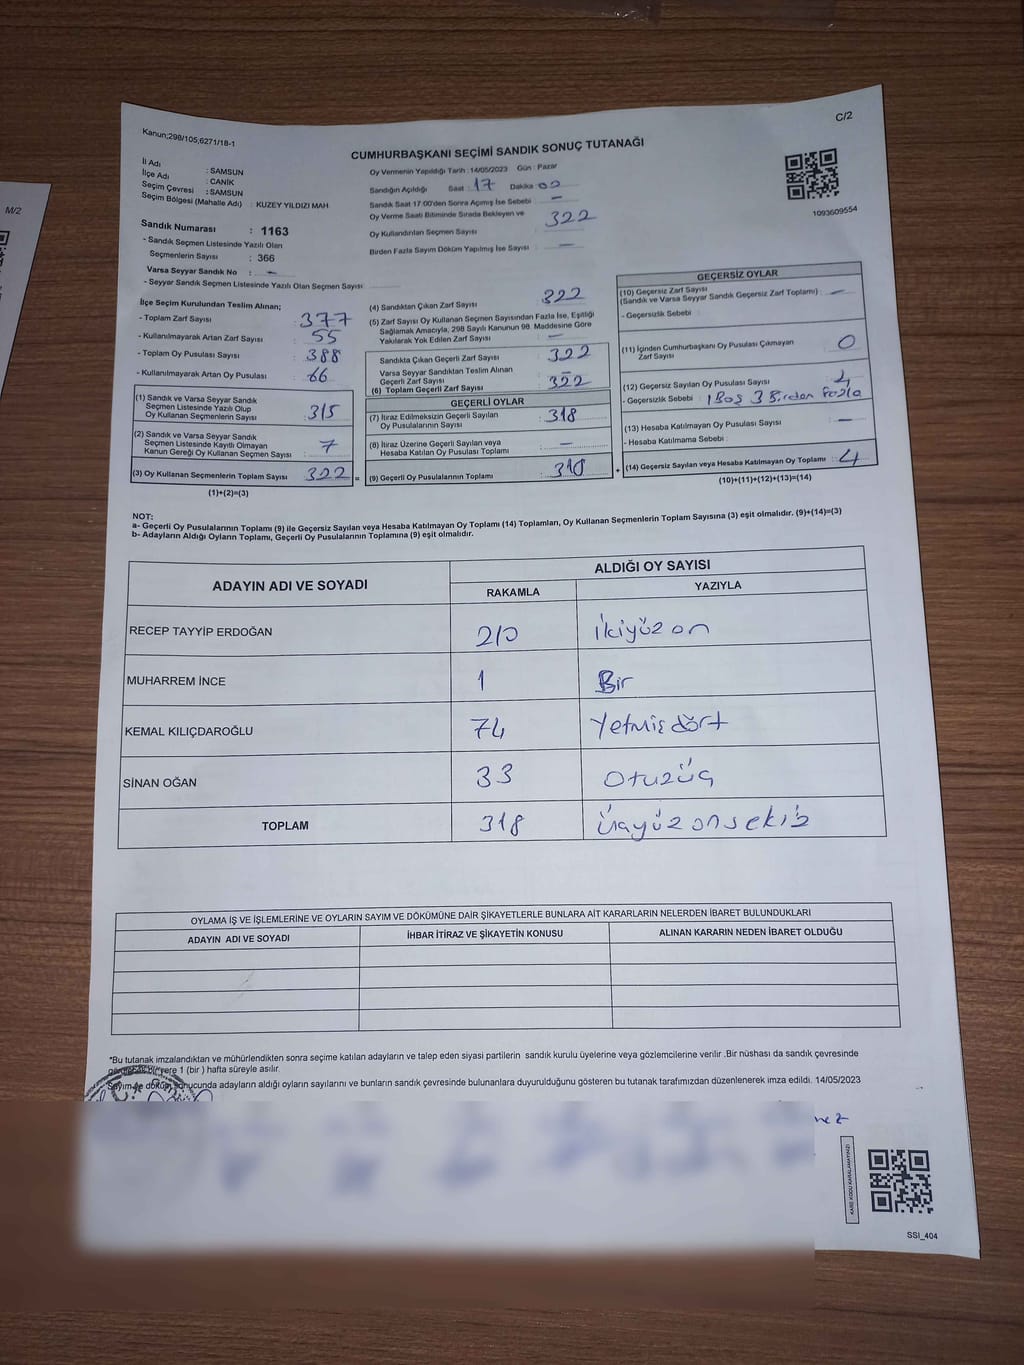 Kanun;298/105,6271/18-1
C/2
CUMHURBAŞKANI SEÇİMİ SANDIK SONUÇ TUTANAĞI
İl Adı : SAMSUN
İlçe Adı : CANİK
Seçim Çevresi : SAMSUN
Seçim Bölgesi (Mahalle Adı) : KUZEY YILDIZI MAH
Sandık Numarası : 1163
- Sandık Seçmen Listesinde Yazılı Olan
Seçmenlerin Sayısı : 366
Varsa Seyyar Sandık No : -
- Seyyar Sandık Seçmen Listesinde Yazılı Olan Seçmen Sayısı :
Oy Vermenin Yapıldığı Tarih : 14/05/2023 Gün : Pazar
Sandığın Açıldığı Saat : 17 Dakika 00
Sandık Saat 17:00'den Sonra Açılmış İse Sebebi : -
Oy Verme Saati Bitiminde Sırada Bekleyen ve
Oy Kullandırılan Seçmen Sayısı : 322
Birden Fazla Sayım Döküm Yapılmış İse Sayısı : -
1093609554
İlçe Seçim Kurulundan Teslim Alınan;
- Toplam Zarf Sayısı : 377
- Kullanılmayarak Artan Zarf Sayısı : 55
- Toplam Oy Pusulası Sayısı : 388
- Kullanılmayarak Artan Oy Pusulası : 66
(1) Sandık ve Varsa Seyyar Sandık
Seçmen Listesinde Yazılı Olup
Oy Kullanan Seçmenlerin Sayısı : 315
(2) Sandık ve Varsa Seyyar Sandık
Seçmen Listesinde Kayıtlı Olmayan
Kanun Gereği Oy Kullanan Seçmen Sayısı : 7
(3) Oy Kullanan Seçmenlerin Toplam Sayısı : 322
(1)+(2)=(3)
(4) Sandıktan Çıkan Zarf Sayısı : 322
(5) Zarf Sayısı Oy Kullanan Seçmen Sayısından Fazla İse, Eşitliği
Sağlamak Amacıyla, 298 Sayılı Kanunun 98. Maddesine Göre
Yakılarak Yok Edilen Zarf Sayısı : -
Sandıkta Çıkan Geçerli Zarf Sayısı : 322
Varsa Seyyar Sandıktan Teslim Alınan
Geçerli Zarf Sayısı : -
(6) Toplam Geçerli Zarf Sayısı : 322
GEÇERLİ OYLAR
(7) İtiraz Edilmeksizin Geçerli Sayılan
Oy Pusulalarının Sayısı : 318
(8) İtiraz Üzerine Geçerli Sayılan veya
Hesaba Katılan Oy Pusulası Toplamı : -
= (9) Geçerli Oy Pusulalarının Toplamı : 318 +
GEÇERSİZ OYLAR
(10) Geçersiz Zarf Sayısı
(Sandık ve Varsa Seyyar Sandık Geçersiz Zarf Toplamı) : -
- Geçersizlik Sebebi :
(11) İçinden Cumhurbaşkanı Oy Pusulası Çıkmayan
Zarf Sayısı : 0
(12) Geçersiz Sayılan Oy Pusulası Sayısı : 4
- Geçersizlik Sebebi : 1 Boş 3 Birden fazla
(13) Hesaba Katılmayan Oy Pusulası Sayısı : -
- Hesaba Katılmama Sebebi :
(14) Geçersiz Sayılan veya Hesaba Katılmayan Oy Toplamı : 4
(10)+(11)+(12)+(13)=(14)
NOT:
a- Geçerli Oy Pusulalarının Toplamı (9) ile Geçersiz Sayılan veya Hesaba Katılmayan Oy Toplamı (14) Toplamları, Oy Kullanan Seçmenlerin Toplam Sayısına (3) eşit olmalıdır. (9)+(14)=(3)
b- Adayların Aldığı Oyların Toplamı, Geçerli Oy Pusulalarının Toplamına (9) eşit olmalıdır.
ADAYIN ADI VE SOYADI
ALDIĞI OY SAYISI
RAKAMLA YAZIYLA
RECEP TAYYİP ERDOĞAN 210 ikiyüz on
MUHARREM İNCE 1 Bir
KEMAL KILIÇDAROĞLU 74 Yetmiş dört
SİNAN OĞAN 33 Otuzüç
TOPLAM 318 üçyüz onsekiz
OYLAMA İŞ VE İŞLEMLERİNE VE OYLARIN SAYIM VE DÖKÜMÜNE DAİR ŞİKAYETLERLE BUNLARA AİT KARARLARIN NELERDEN İBARET BULUNDUKLARI
ADAYIN ADI VE SOYADI İHBAR İTİRAZ VE ŞİKAYETİN KONUSU ALINAN KARARIN NEDEN İBARET OLDUĞU
*Bu tutanak imzalandıktan ve mühürlendikten sonra seçime katılan adayların ve talep eden siyasi partilerin sandık kurulu üyelerine veya gözlemcilerine verilir .Bir nüshası da sandık çevresinde
görülebilecek bir yere 1 (bir ) hafta süreyle asılır.
Sayım ve döküm sonucunda adayların aldığı oyların sayılarını ve bunların sandık çevresinde bulunanlara duyurulduğunu gösteren bu tutanak tarafımızdan düzenlenerek imza edildi. 14/05/2023
KARE KODU KARALAMAYINIZ!
SSI_404
M/2